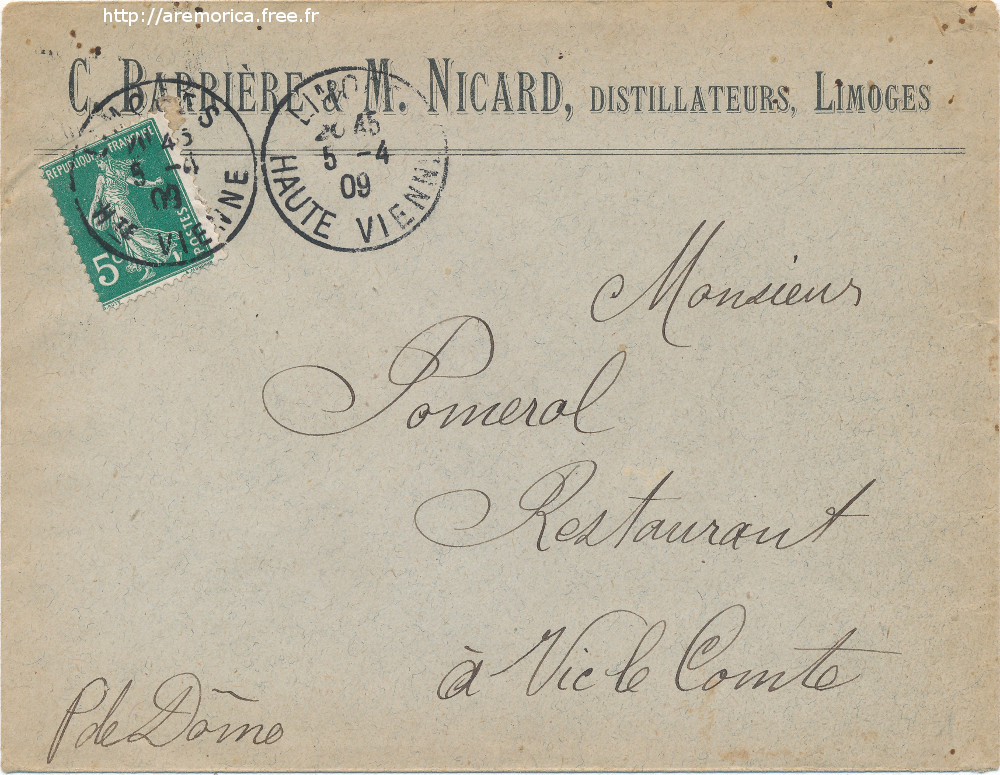 http://aremorica.free.fr
C. BARRIÈRE & M. NICARD, DISTILLATEURS, LIMOGES
LIMOGES
20 45
5 -4
09
HAUTE VIENNE
RÉPUBLIQUE FRANÇAISE
POSTES
5c
45
5 -4
Hte VIENNE
Monsieur
Pomerol
Restaurant
à Vic le Comte
P de Dôme